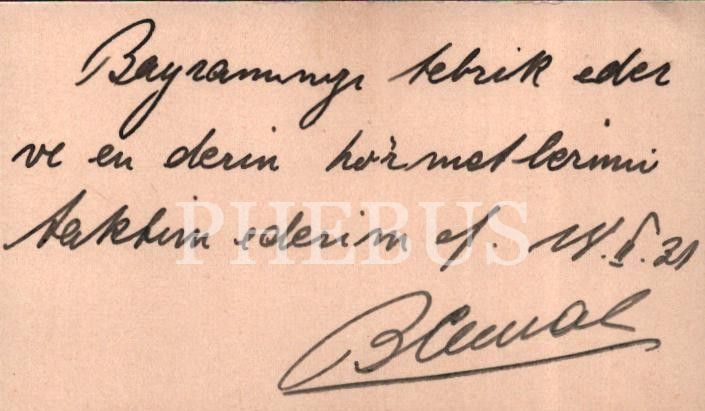 Bayramınızı tebrik eder
ve en derin hörmetlerimi
taktim ederim ef. 18.II.31
PHEBUS
B Cemal